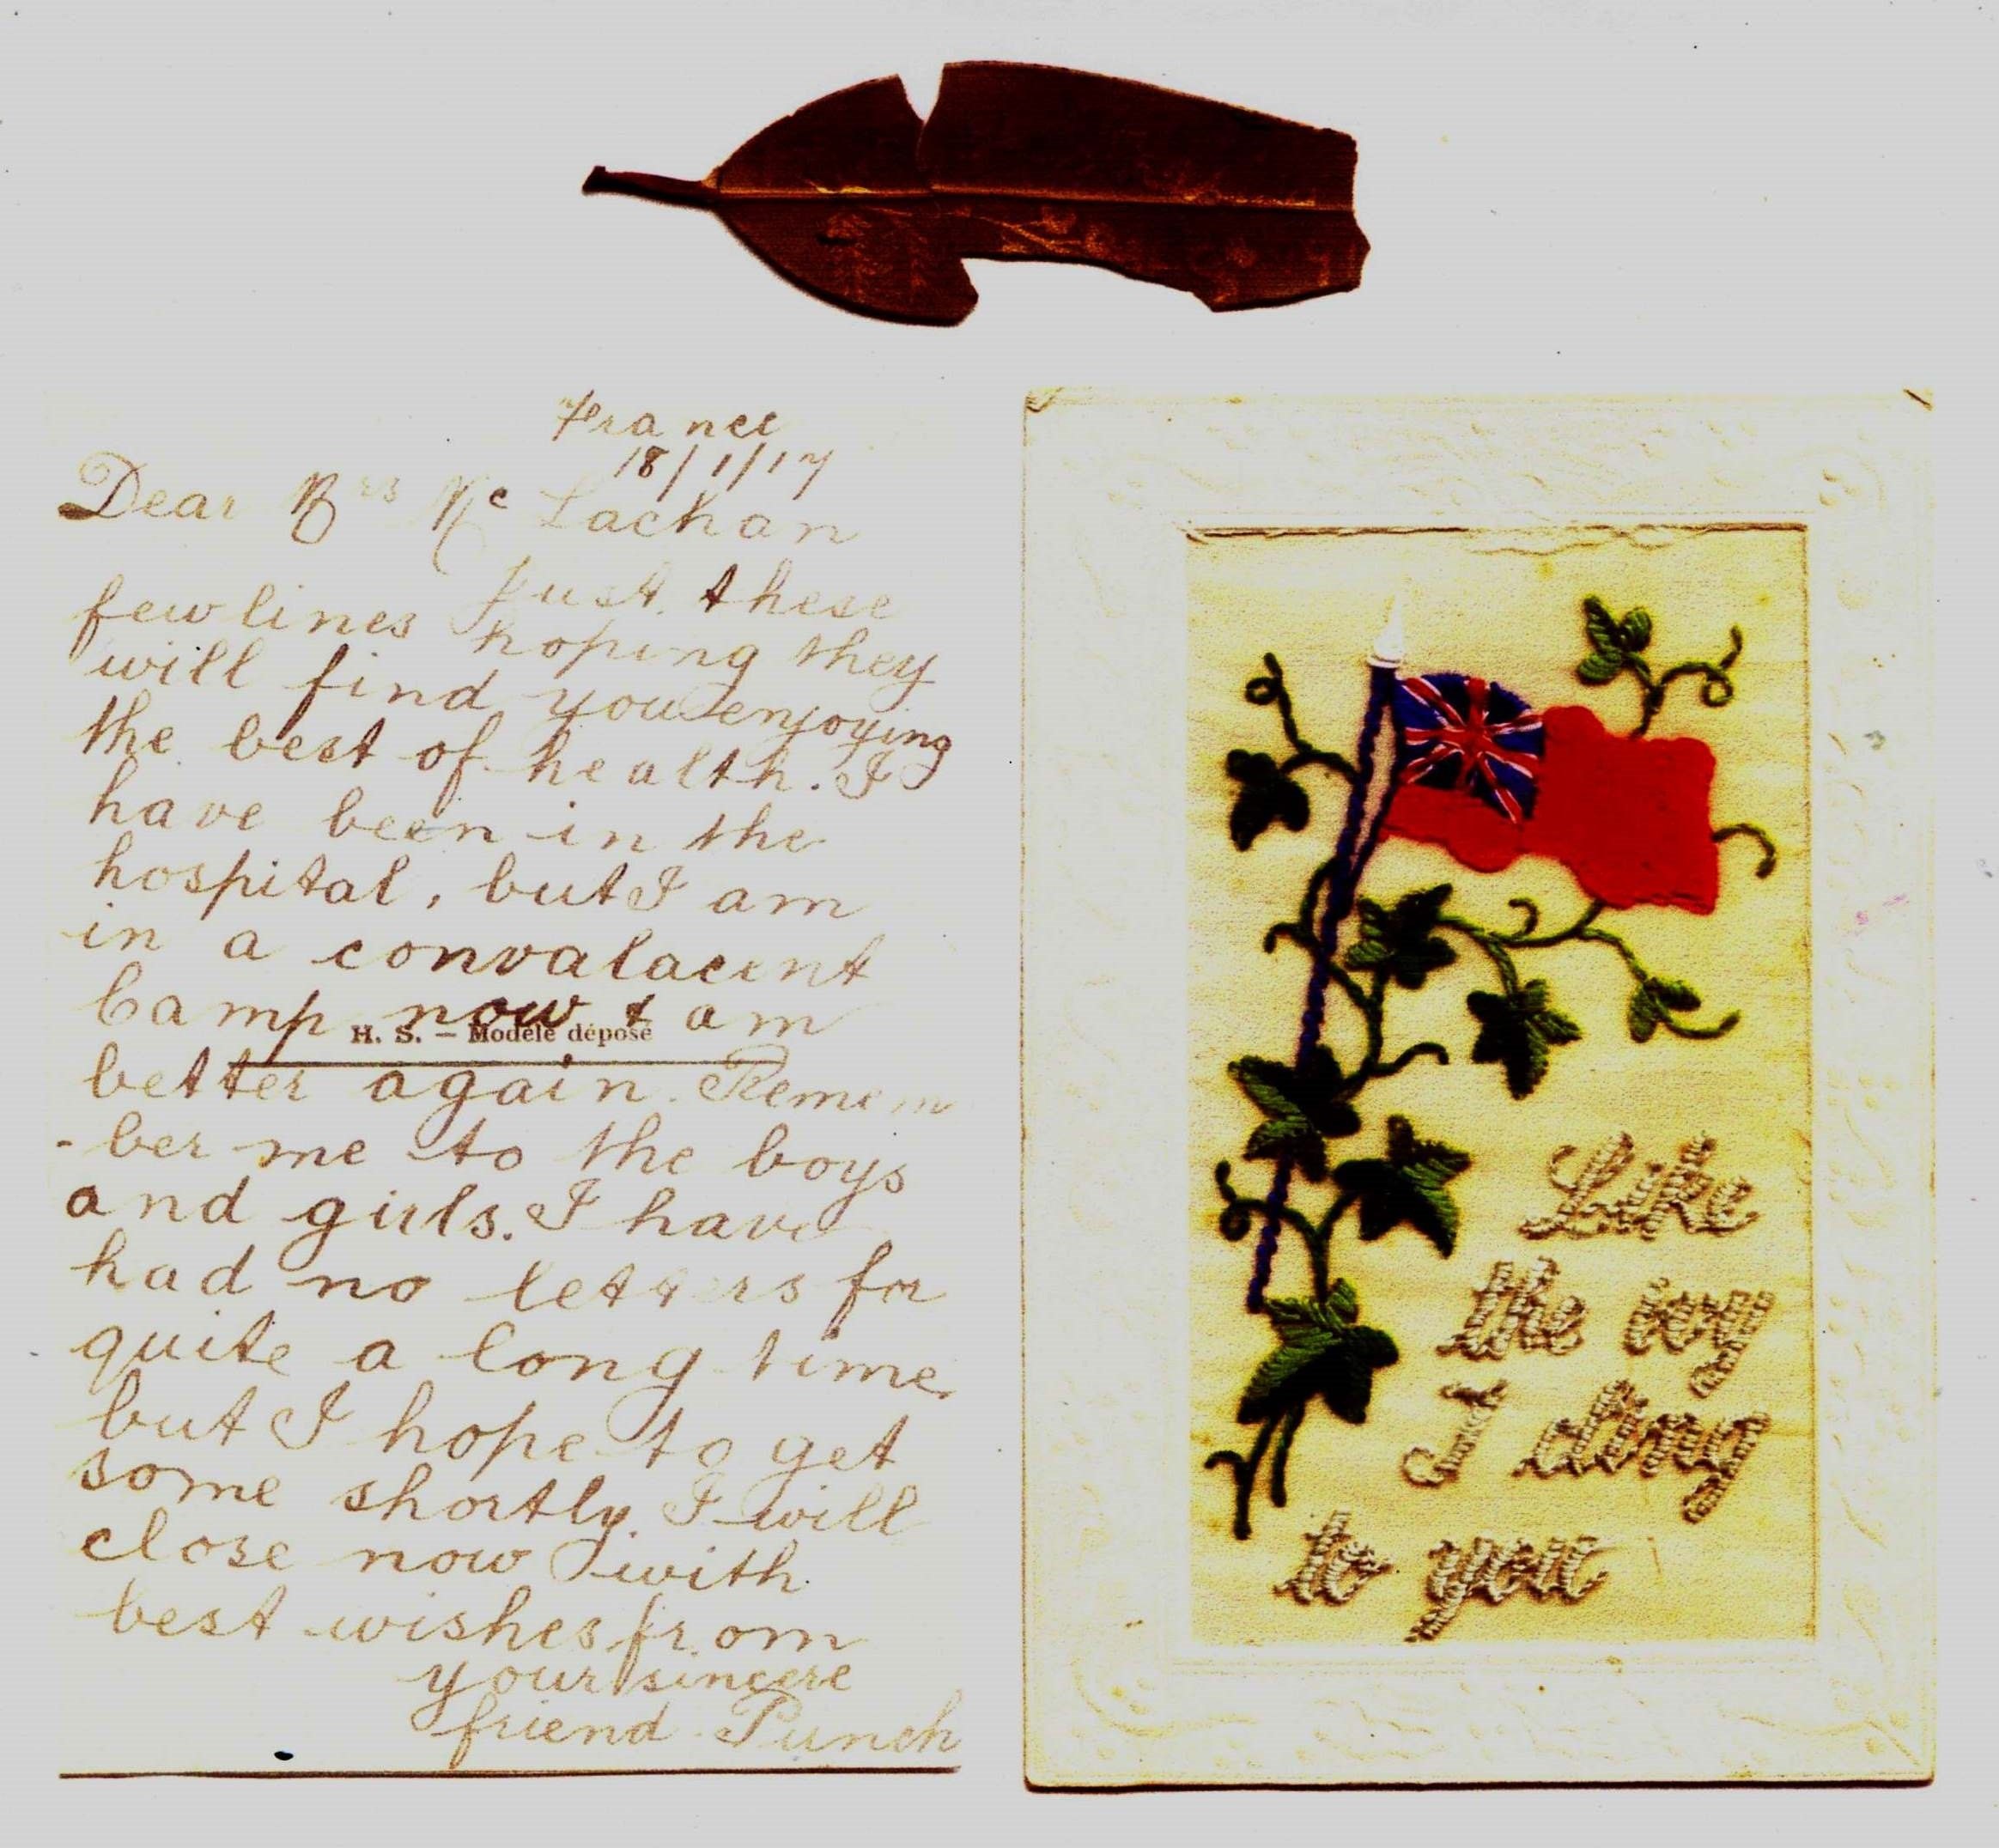 France
18/1/17
Dear Mrs Mc Lachan
Just these
few lines hoping they
will find you enjoying
the best of health. I
have been in the
hospital, but I am
in a convalacent
Camp now & am
H. S. – Modèle déposé
better again. Remem
-ber me to the boys
and girls. I have
had no letters for
quite a long time
but I hope to get
some shortly. I will
close now with
best wishes from
your sincere
friend Punch
Like
the ivy
I cling
to you